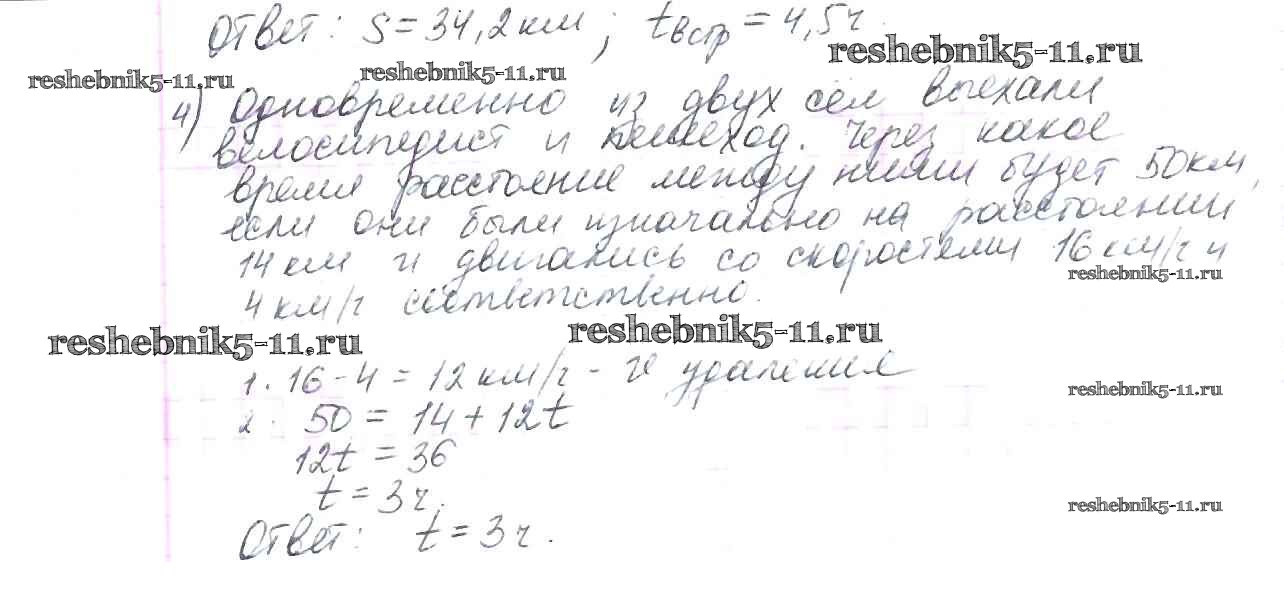 Ответ: S = 34,2 км ; tвстр = 4,5 ч.
reshebnik5-11.ru
reshebnik5-11.ru
reshebnik5-11.ru
4) Одновременно из двух сел выехали
велосипедист и пешеход. Через какое
время расстояние между ними будет 50 км,
если они были изначально на расстоянии
14 км и двигались со скоростями 16 км/ч и
reshebnik5-11.ru
4 км/ч соответственно.
reshebnik5-11.ru
reshebnik5-11.ru
1. 16 - 4 = 12 км/ч - υ удаления
reshebnik5-11.ru
2. 50 = 14 + 12t
12t = 36
t = 3 ч.
reshebnik5-11.ru
Ответ: t = 3 ч.